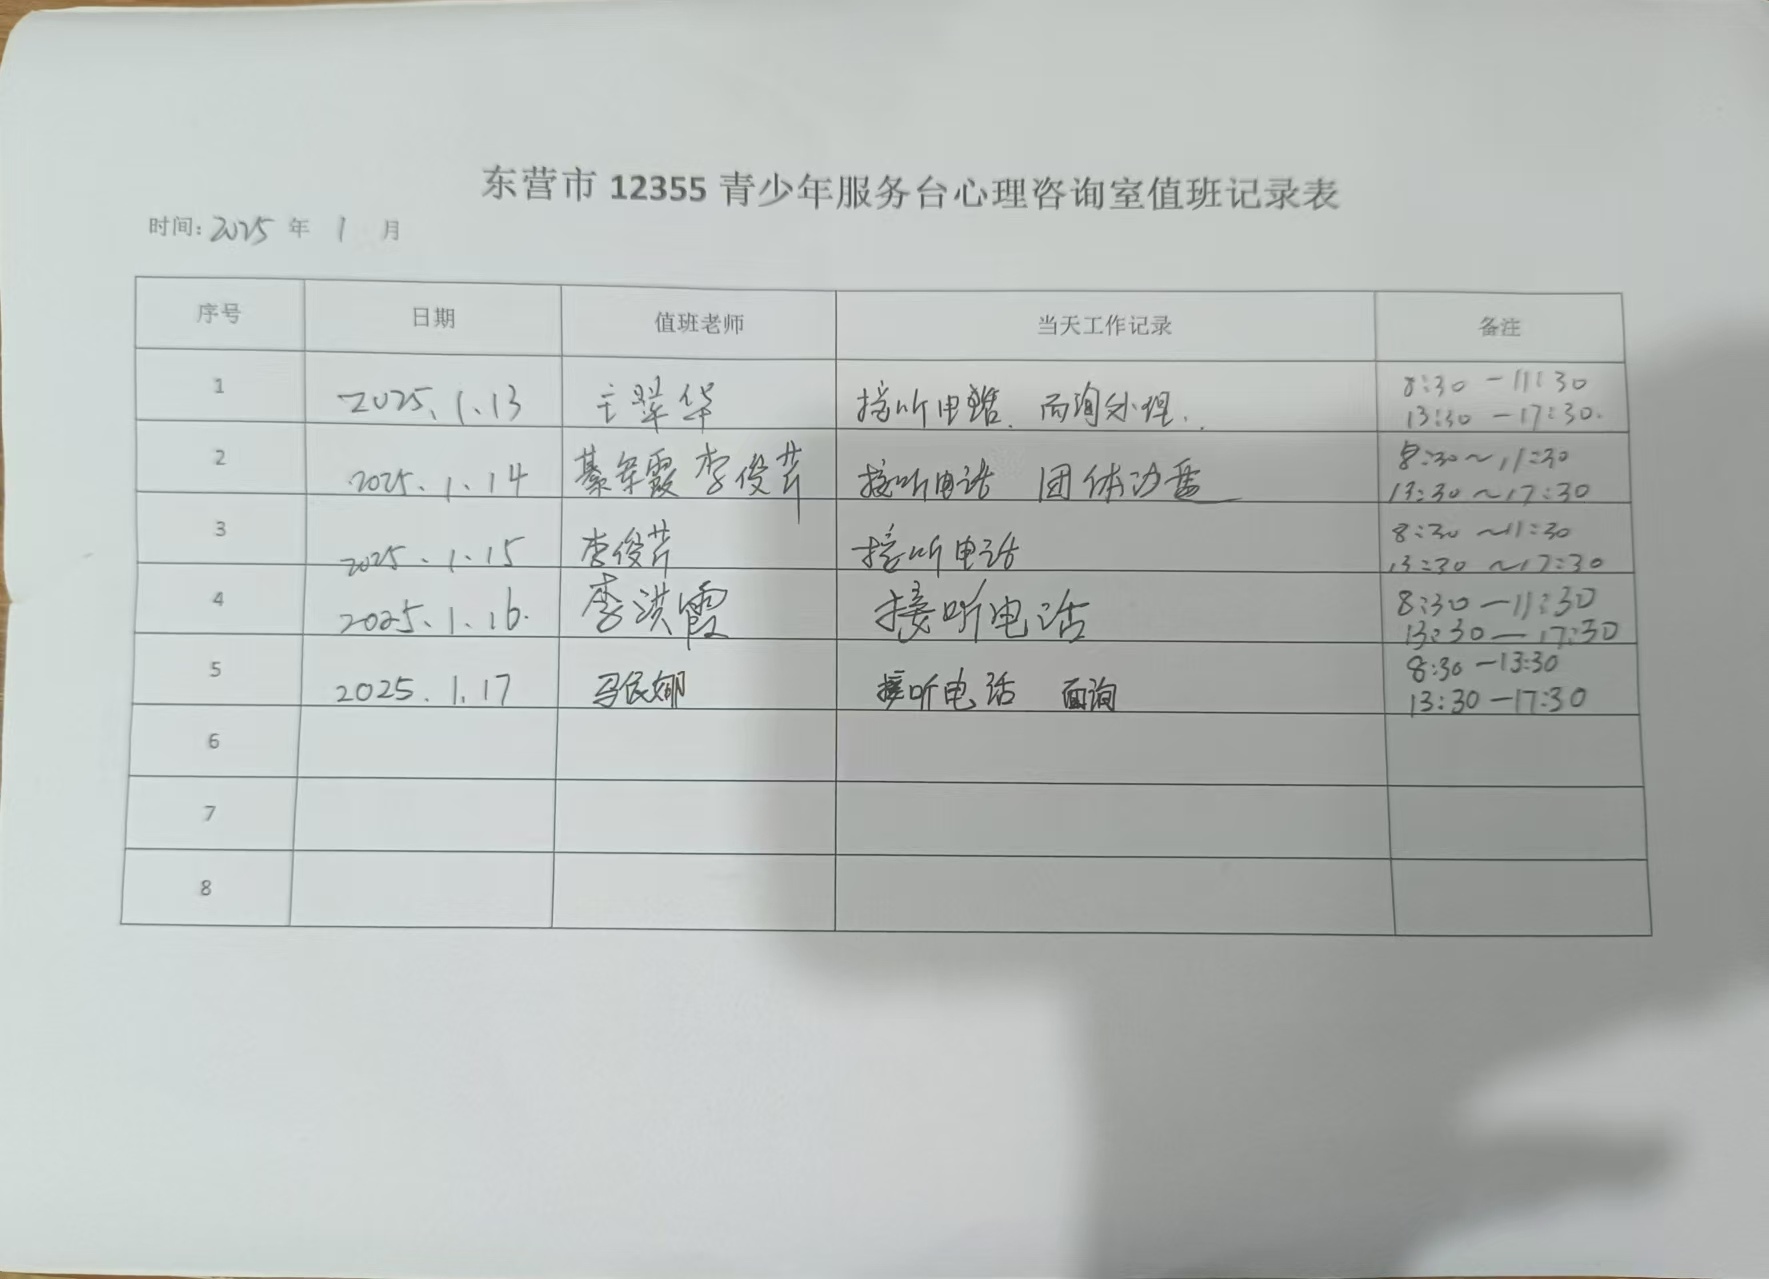 东营市 12355 青少年服务台心理咨询室值班记录表
时间: 2025 年 1 月
序号 日期 值班老师 当天工作记录 备注
1 2025.1.13 王翠华 接听电话. 面询处理. 8:30 - 11:30
13:30 - 17:30.
2 2025.1.14 綦军霞 李俊芹 接听电话 团体沙盘 8:30 ~ 11:30
13:30 ~ 17:30
3 2025.1.15 李俊芹 接听电话 8:30 ~ 11:30
13:30 ~ 17:30
4 2025.1.16. 李洪霞 接听电话 8:30 - 11:30
13:30 - 17:30
5 2025.1.17 马民娜 接听电话 面询 8:30 - 13:30
13:30 - 17:30
6
7
8